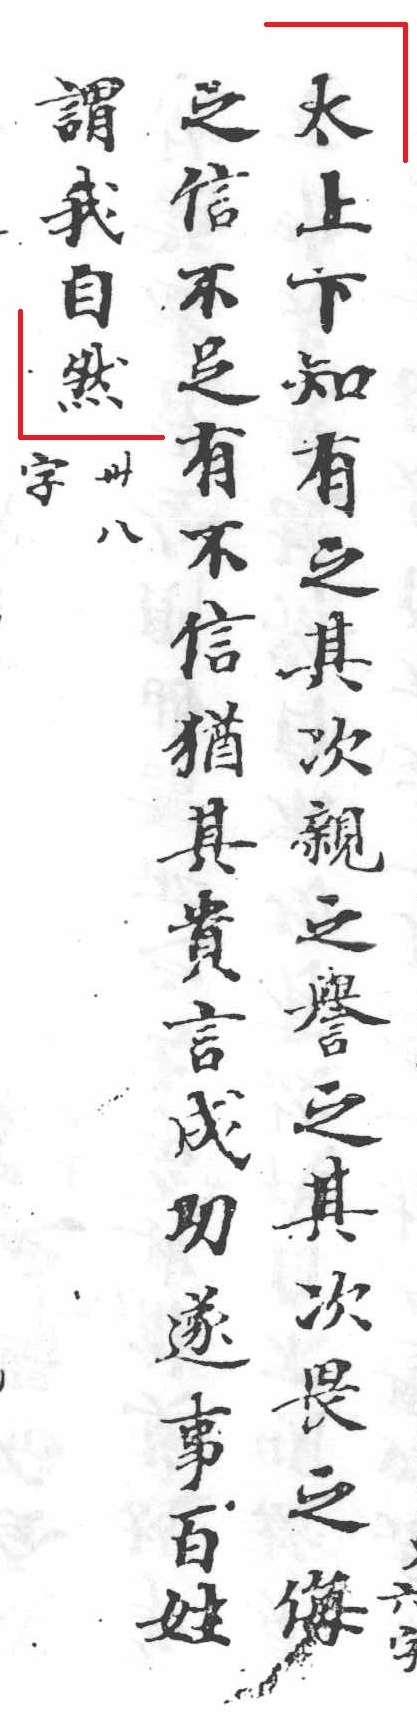 六字
太上下知有之其次親之譽之其次畏之侮
之信不足有不信猶其貴言成功遂事百姓
謂我自然
卅八
字